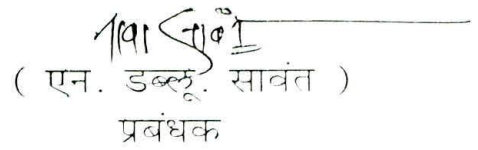 ( एन. डब्लू. सावंत )
प्रबंधक